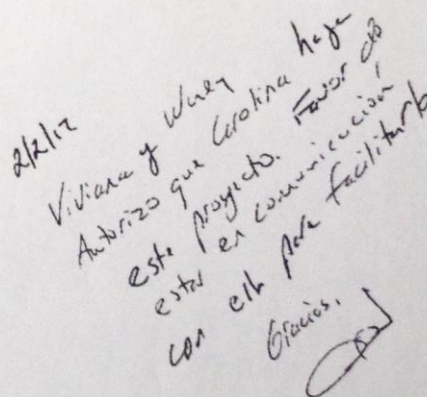 2/2/12
Viviana y Waley
Autorizo que Carolina haga
este proyecto. Favor de
estar en comunicación
con ella para facilitarlo
Gracias,